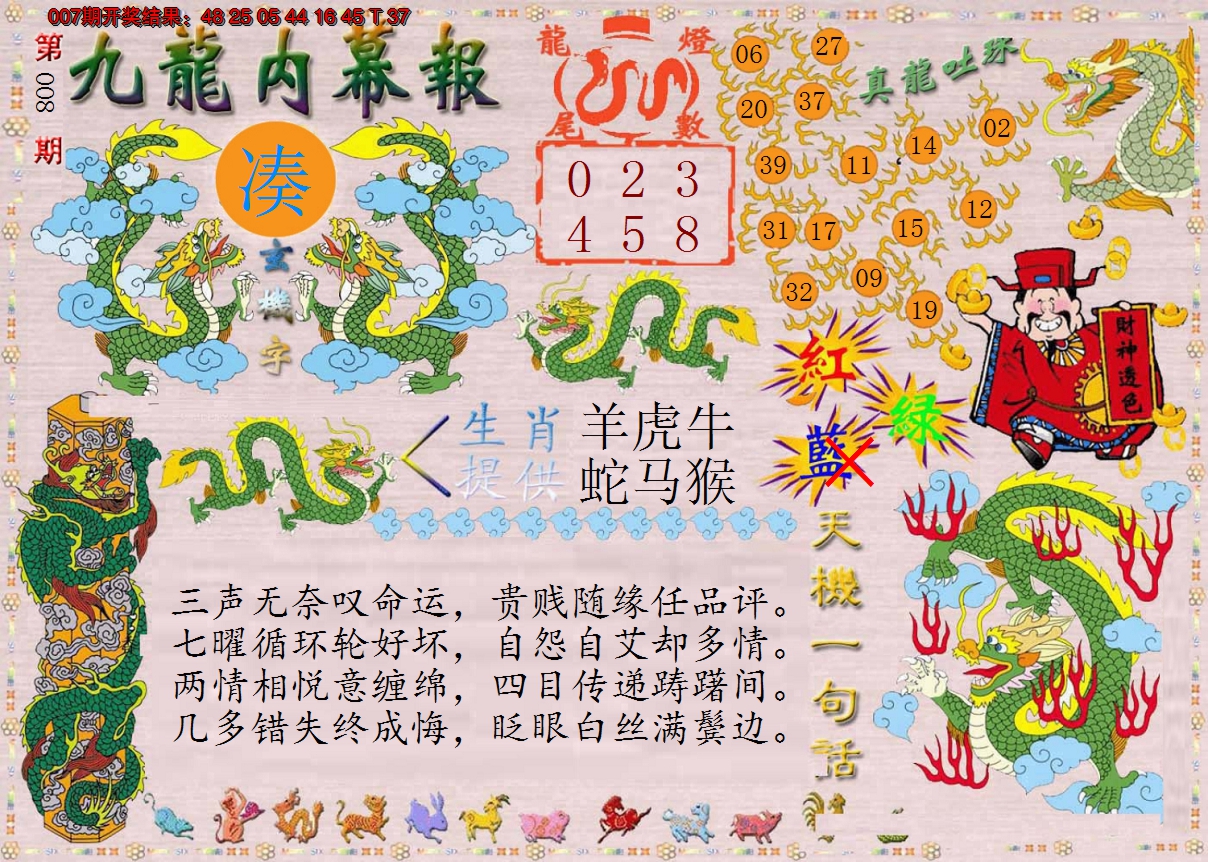 007期开奖结果：48 25 05 44 16 45 T 37
第
008
期
九龍内幕報
凑
玄
機
字
龍 燈
尾 數
0 2 3
4 5 8
真龍吐珠
06
27
20
37
39
11
14
02
31
17
15
12
32
09
19
紅
綠
藍
財神透色
生肖 羊虎牛
提供 蛇马猴
三声无奈叹命运，贵贱随缘任品评。
七曜循环轮好坏，自怨自艾却多情。
两情相悦意缠绵，四目传递踌躇间。
几多错失终成悔，眨眼白丝满鬓边。
天機一句話